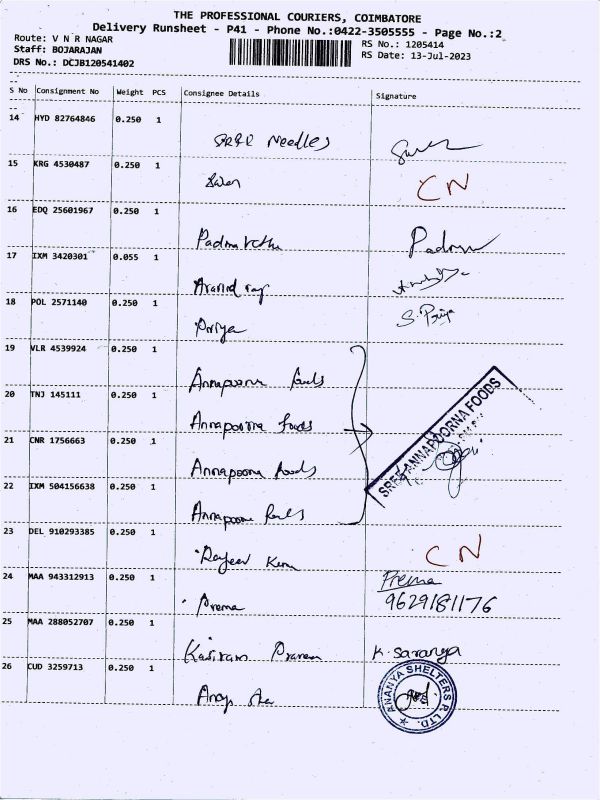 THE PROFESSIONAL COURIERS, COIMBATORE
Delivery Runsheet - P41 - Phone No.:0422-3505555 - Page No.:2
Route: V N R NAGAR
Staff: BOJARAJAN
DRS No.: DCJB120541402
RS No.: 1205414
RS Date: 13-Jul-2023
S No Consignment No Weight PCS Consignee Details Signature
14 HYD 82764846 0.250 1
Needles
15 KRG 4530487 0.250 1
CN
16 EDQ 25601967 0.250 1
Padma
17 IXM 3420301 0.055 1
Aravind raj
18 POL 2571140 0.250 1
Priya S. Priya
19 VLR 4539924 0.250 1
Annapoorna foods
20 TNJ 145111 0.250 1
Annapoorna foods
SREE ANNAPOORNA FOODS
21 CNR 1756663 0.250 1
Annapoorna foods
22 IXM 504156638 0.250 1
Annapoorna foods
23 DEL 910293385 0.250 1
Rajeev CN
24 MAA 943312913 0.250 1
Prema Prema
9629181176
25 MAA 288052707 0.250 1
K. Saranya
26 CUD 3259713 0.250 1
ANANYA SHELTERS P. LTD.